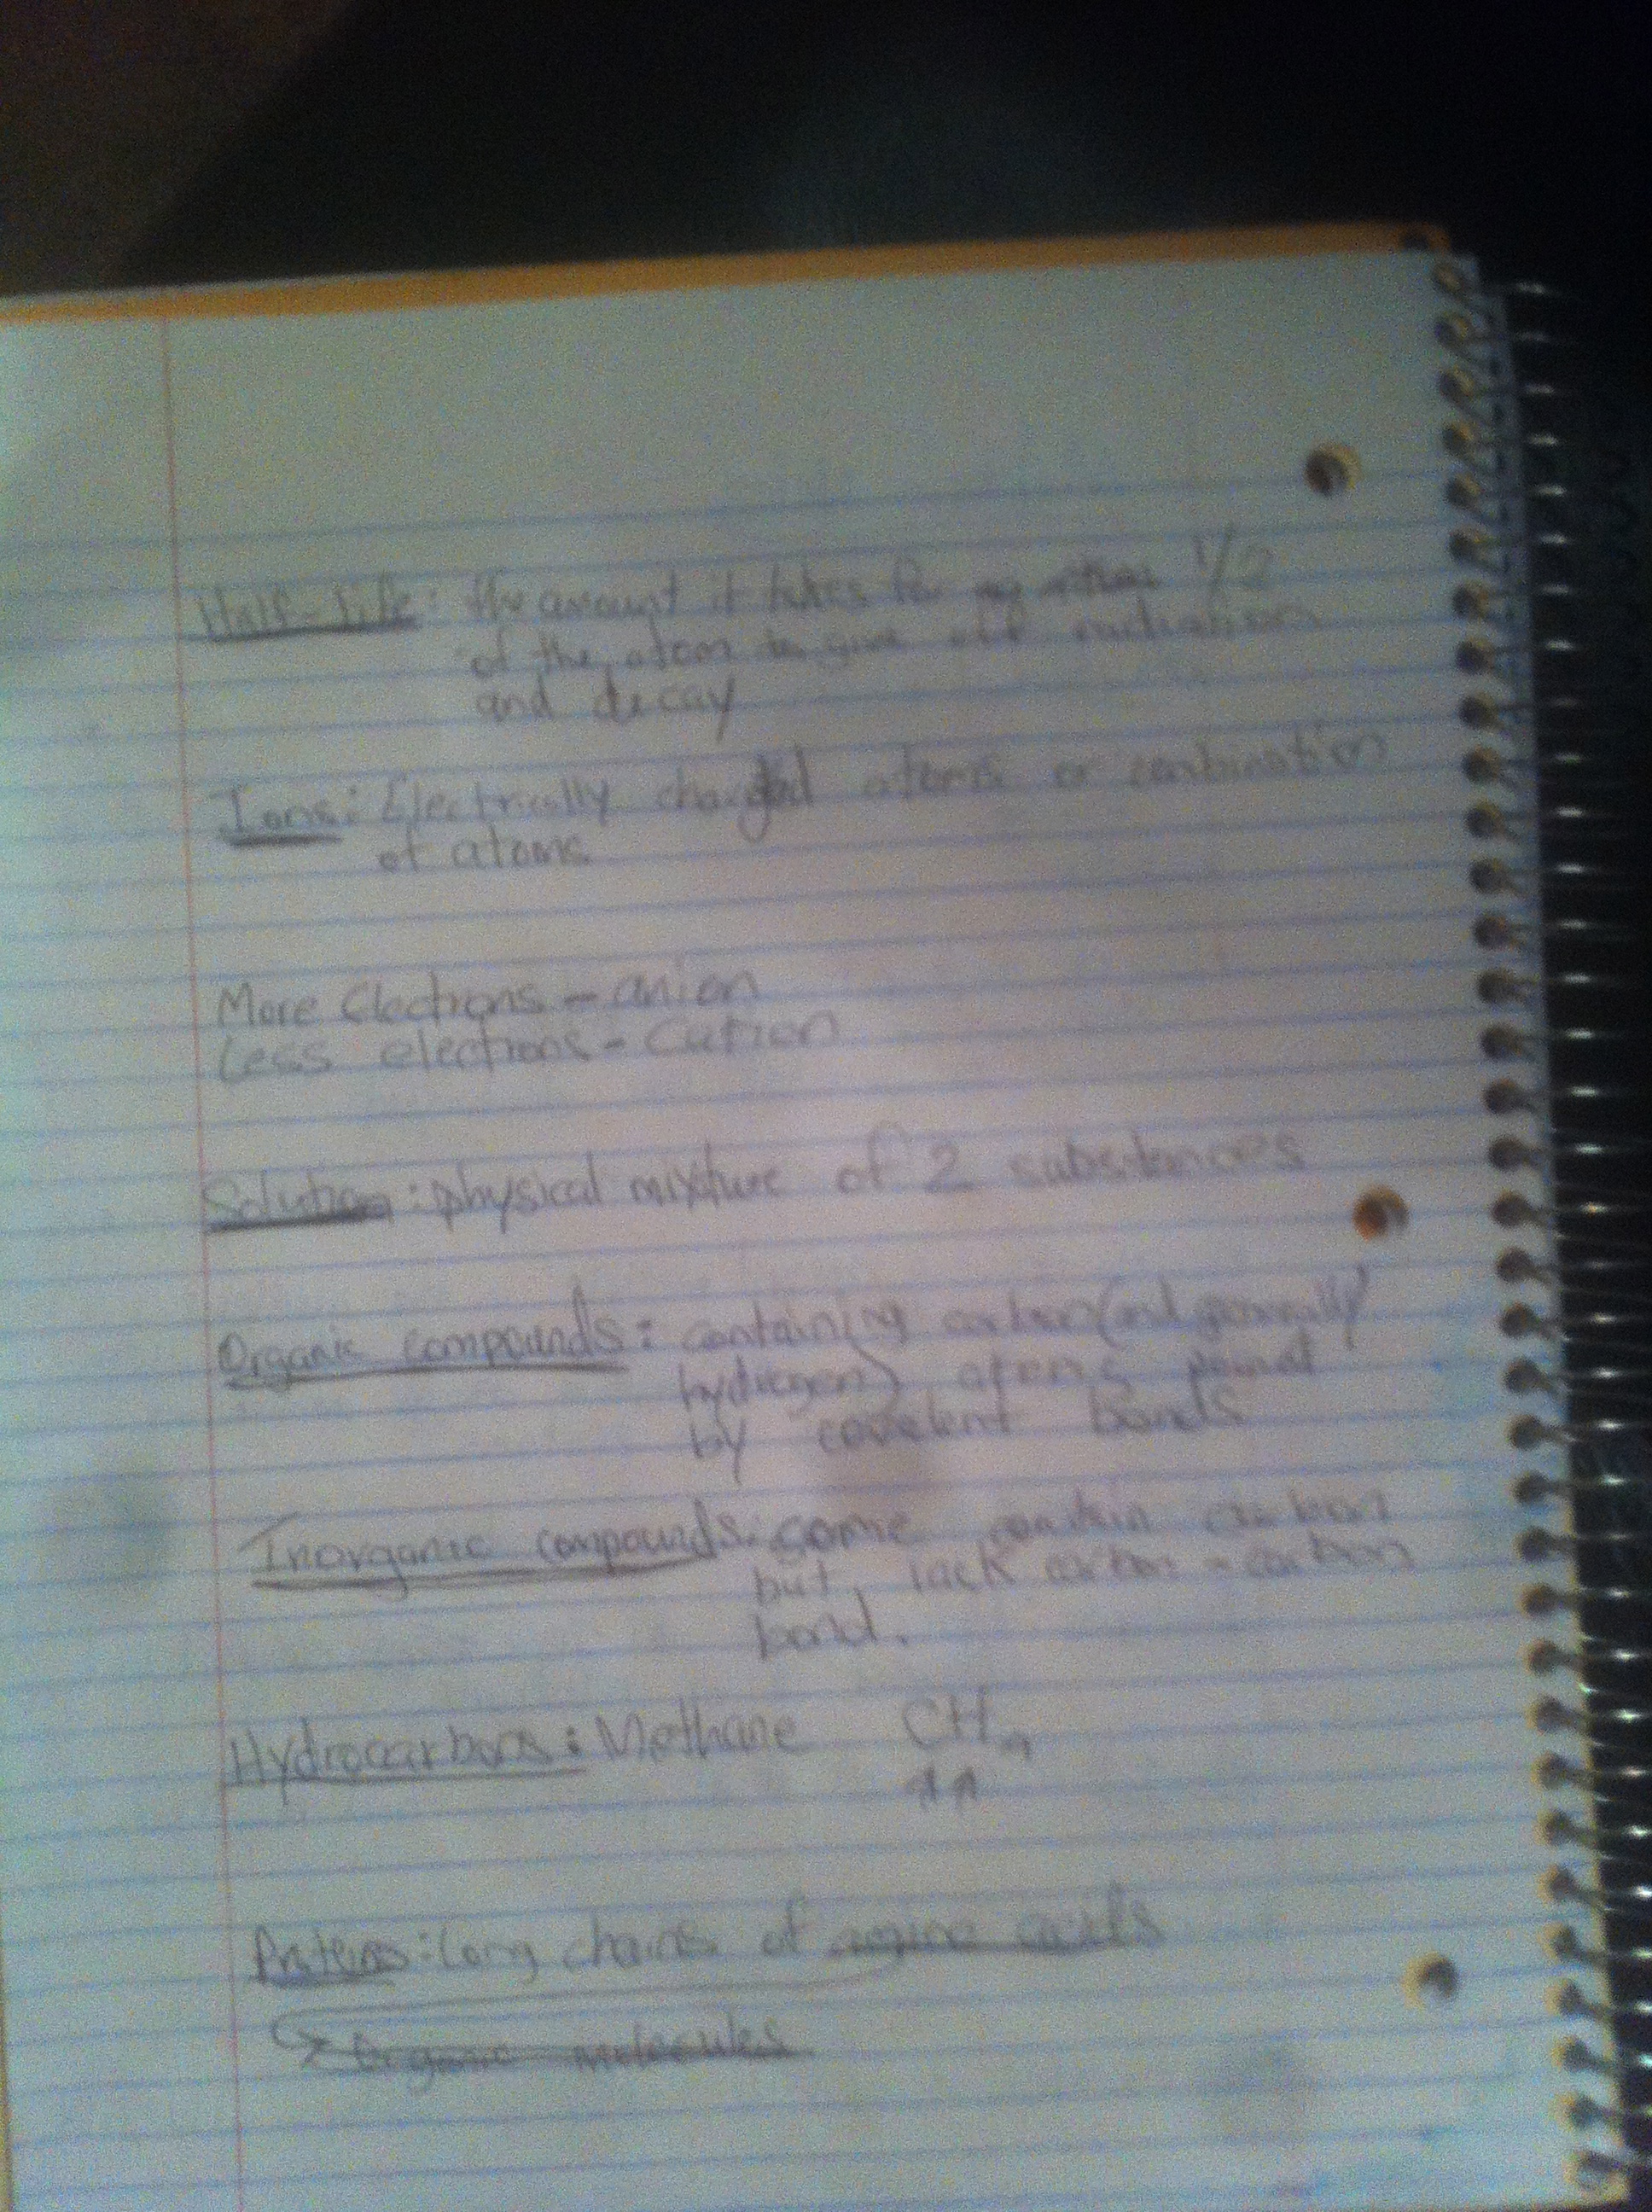 Half-life: the amount it takes for 1/2
of the atom to give off radiation
and decay
Ions: Electrically charged atoms or combination
of atoms
More Electrons - anion
Less electrons - Cation
Solution: physical mixture of 2 substances
Organic compounds: containing carbon (and generally
hydrogen) atoms
by covelent bonds
Inorganic compounds: some contain carbon
but lack carbon - carbon
bond.
Hydrocarbons: Methane CH4
Proteins: Long chains of amino acids
Organic molecules